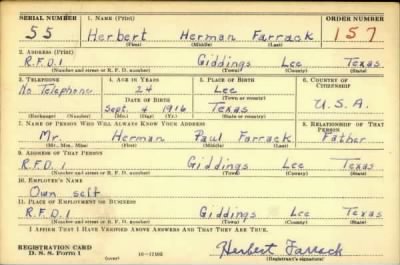 SERIAL NUMBER 1. NAME (Print) ORDER NUMBER
55 Herbert Herman Farrack 157
(First) (Middle) (Last)
2. ADDRESS (Print)
R.F.D.1 Giddings Lee Texas
(Number and street or R. F. D. number) (Town) (County) (State)
3. TELEPHONE 4. AGE IN YEARS 5. PLACE OF BIRTH 6. COUNTRY OF CITIZENSHIP
No Telephone 24 Lee
DATE OF BIRTH (Town or county)
Sept. 4 1916 Texas U.S.A.
(Exchange) (Number) (Mo.) (Day) (Yr.) (State or country)
7. NAME OF PERSON WHO WILL ALWAYS KNOW YOUR ADDRESS 8. RELATIONSHIP OF THAT PERSON
Mr. Herman Paul Farrack Father
(Mr., Mrs., Miss) (First) (Middle) (Last)
9. ADDRESS OF THAT PERSON
R.F.D.1 Giddings Lee Texas
(Number and street or R. F. D. number) (Town) (County) (State)
10. EMPLOYER'S NAME
Own self
11. PLACE OF EMPLOYMENT OR BUSINESS
R.F.D.1 Giddings Lee Texas
(Number and street or R. F. D. number) (Town) (County) (State)
I AFFIRM THAT I HAVE VERIFIED ABOVE ANSWERS AND THAT THEY ARE TRUE.
REGISTRATION CARD Herbert Farrack
D. S. S. FORM 1 (over) (Registrant's signature)